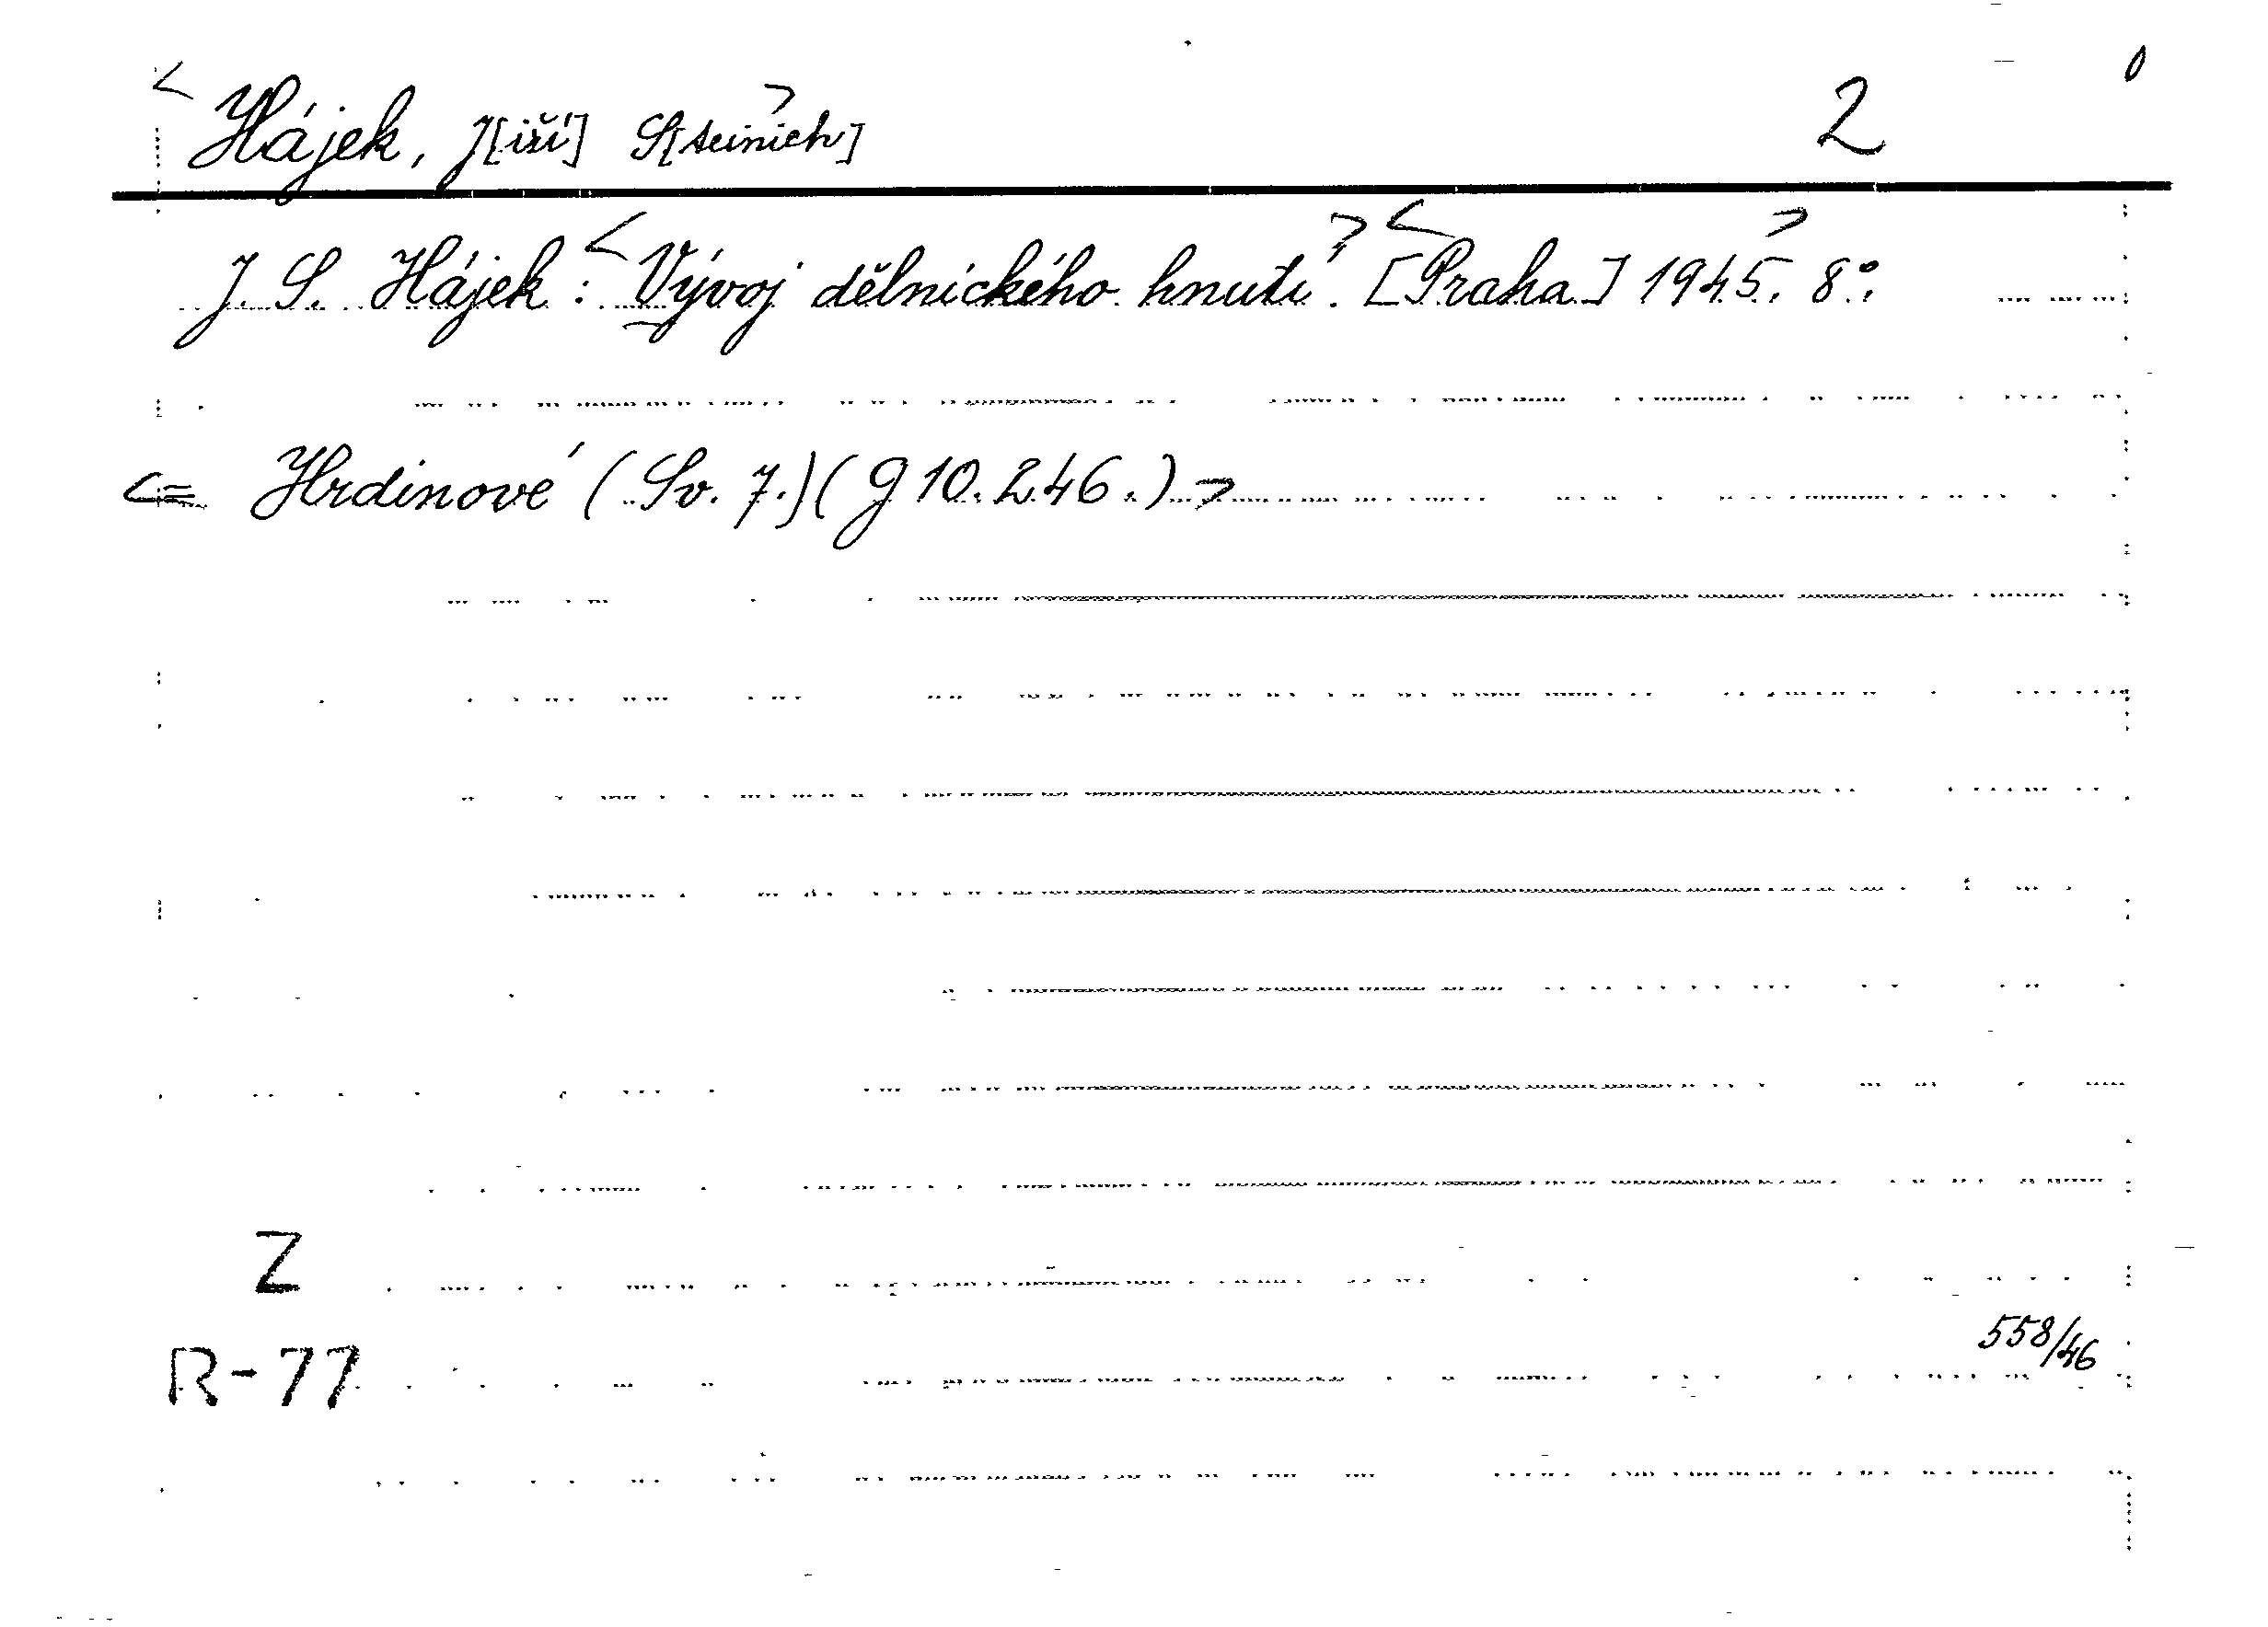 <Hájek, J[iří] S[teinich]> 2 0
J. S. Hájek: <Vývoj dělnického hnutí.> <[Praha] 1945.> 8°.
<= Hrdinové (Sv. 7.) (g 10.246.)>
Z
R-77
558/46